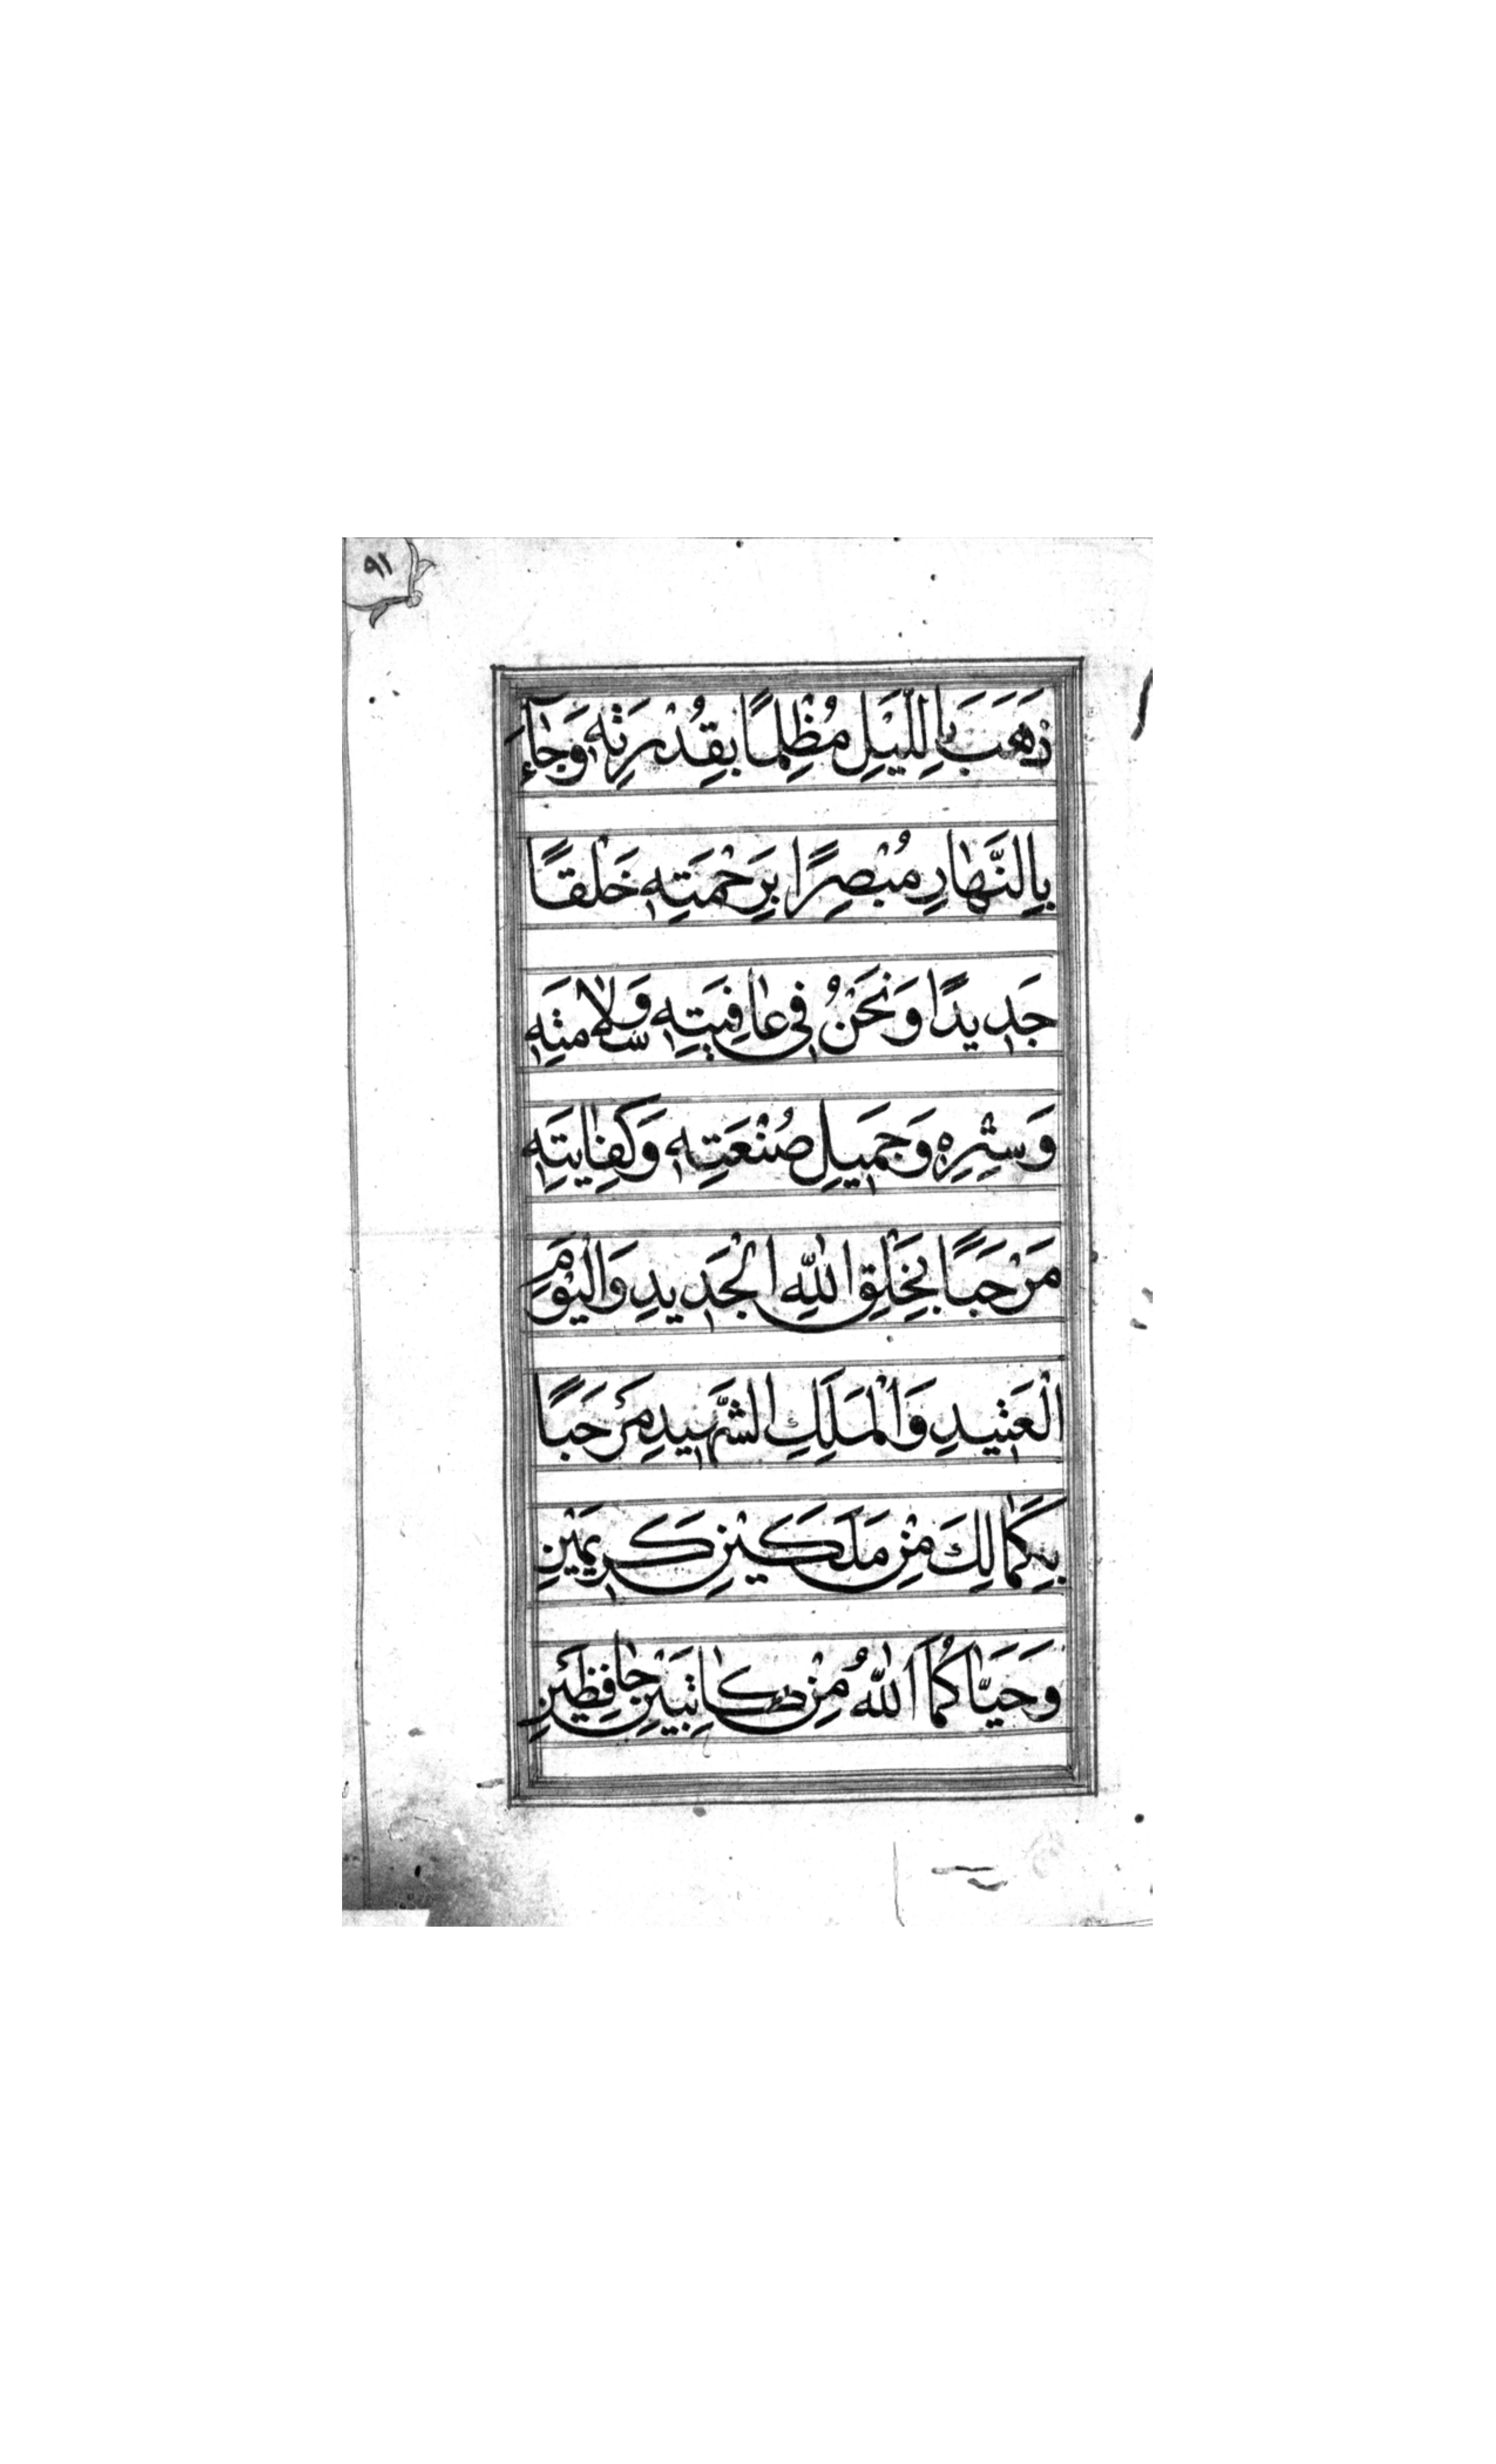 ٩١
ذَهَبَ بِاللَّيْلِ مُظْلِمًا بِقُدْرَتِهِ وَجَاءَ
بِالنَّهَارِ مُبْصِرًا بِرَحْمَتِهِ خَلْقًا
جَدِيدًا وَنَحْنُ فِي عَافِيَتِهِ وَسَلَامَتِهِ
وَسِتْرِهِ وَجَمِيلِ صُنْعَتِهِ وَكِفَايَتِهِ
مَرْحَبًا بِخَلْقِ اللهِ الْجَدِيدِ وَالْيَوْمِ
الْعَتِيدِ وَالْمَلَكِ الشَّهِيدِ مَرْحَبًا
بِكُمَا لَكَ مِنْ مَلَكَيْنِ كَرِيمَيْنِ
وَحَيَّاكُمَا اللهُ مِنْ كَاتِبَيْنِ حَافِظَيْنِ